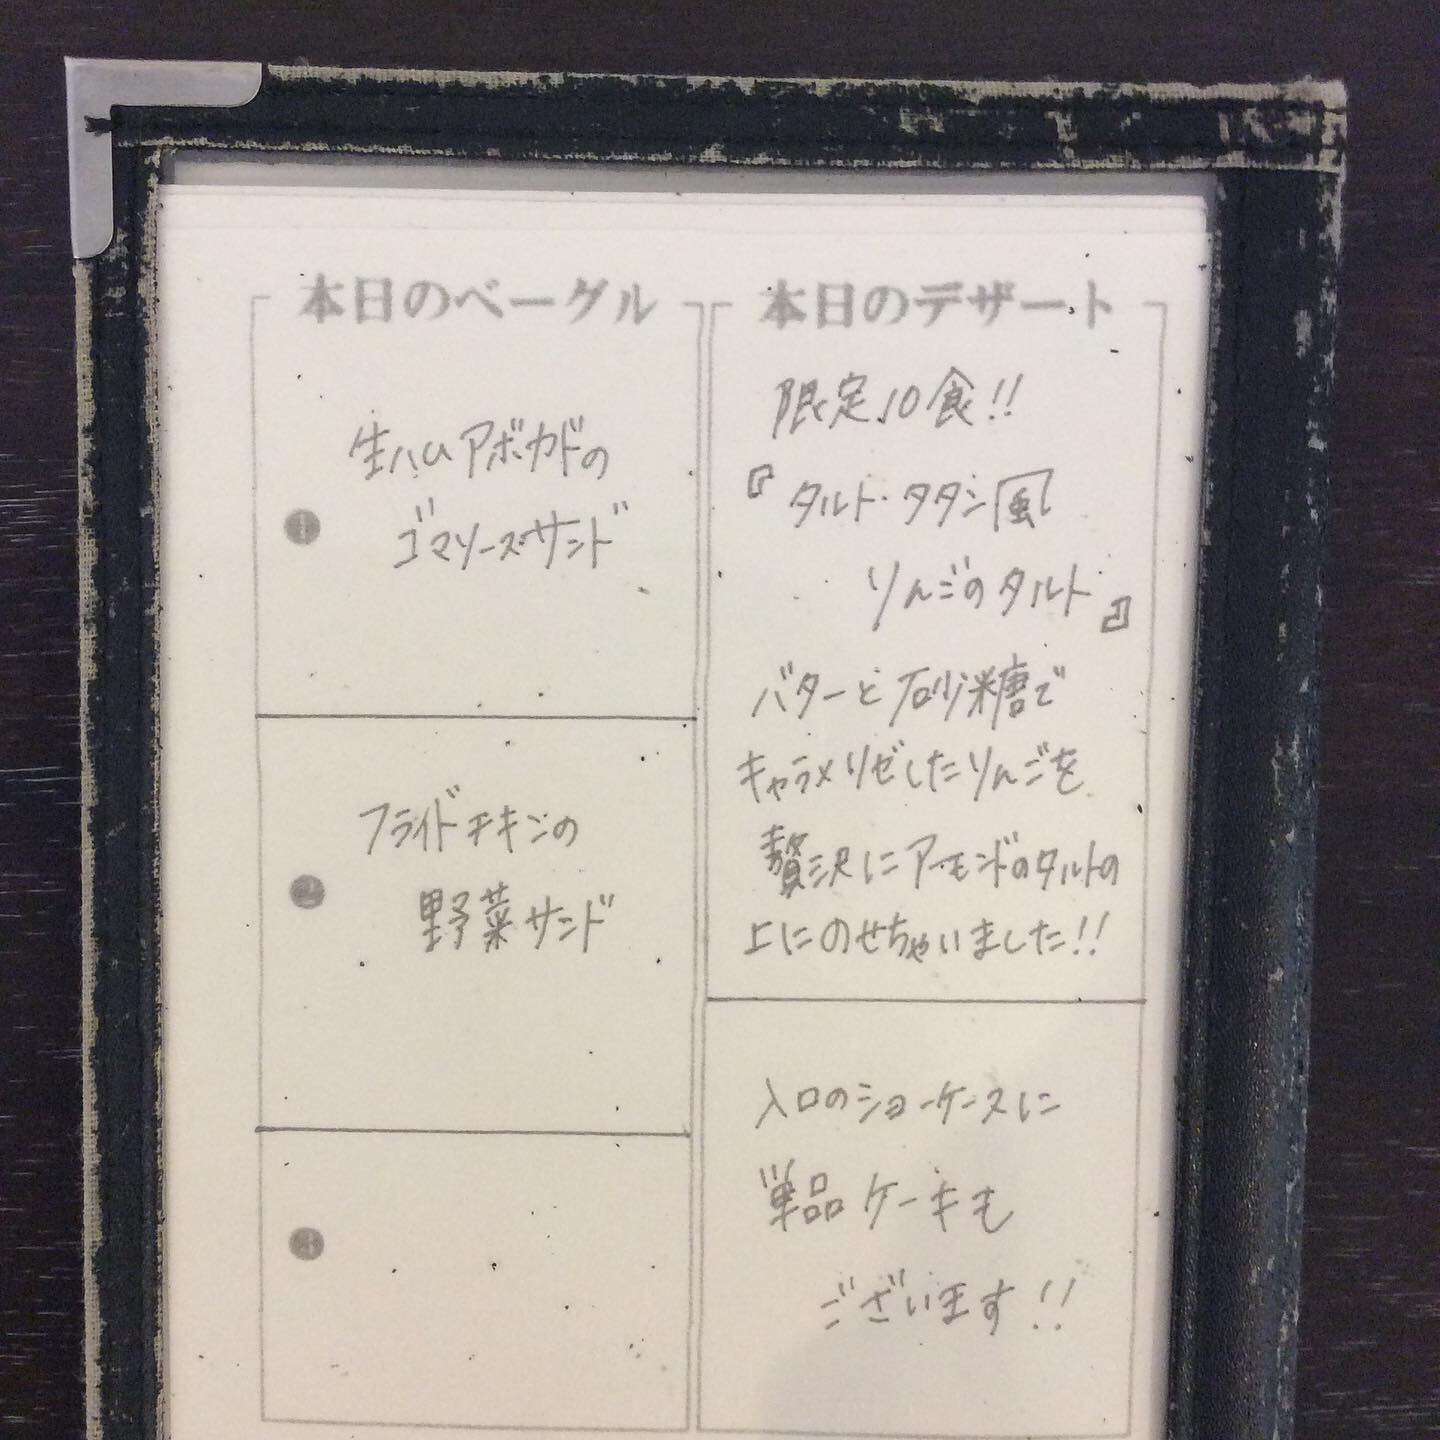 本日のベーグル
❶
生ハムアボカドの
ゴマソースサンド
❷
フライドチキンの
野菜サンド
❸
本日のデザート
限定10食!!
『タルト・タタン風
りんごのタルト』
バターと砂糖で
キャラメリゼしたりんごを
贅沢にアーモンドのタルトの
上にのせちゃいました!!
入口のショーケースに
単品ケーキも
ございます!!